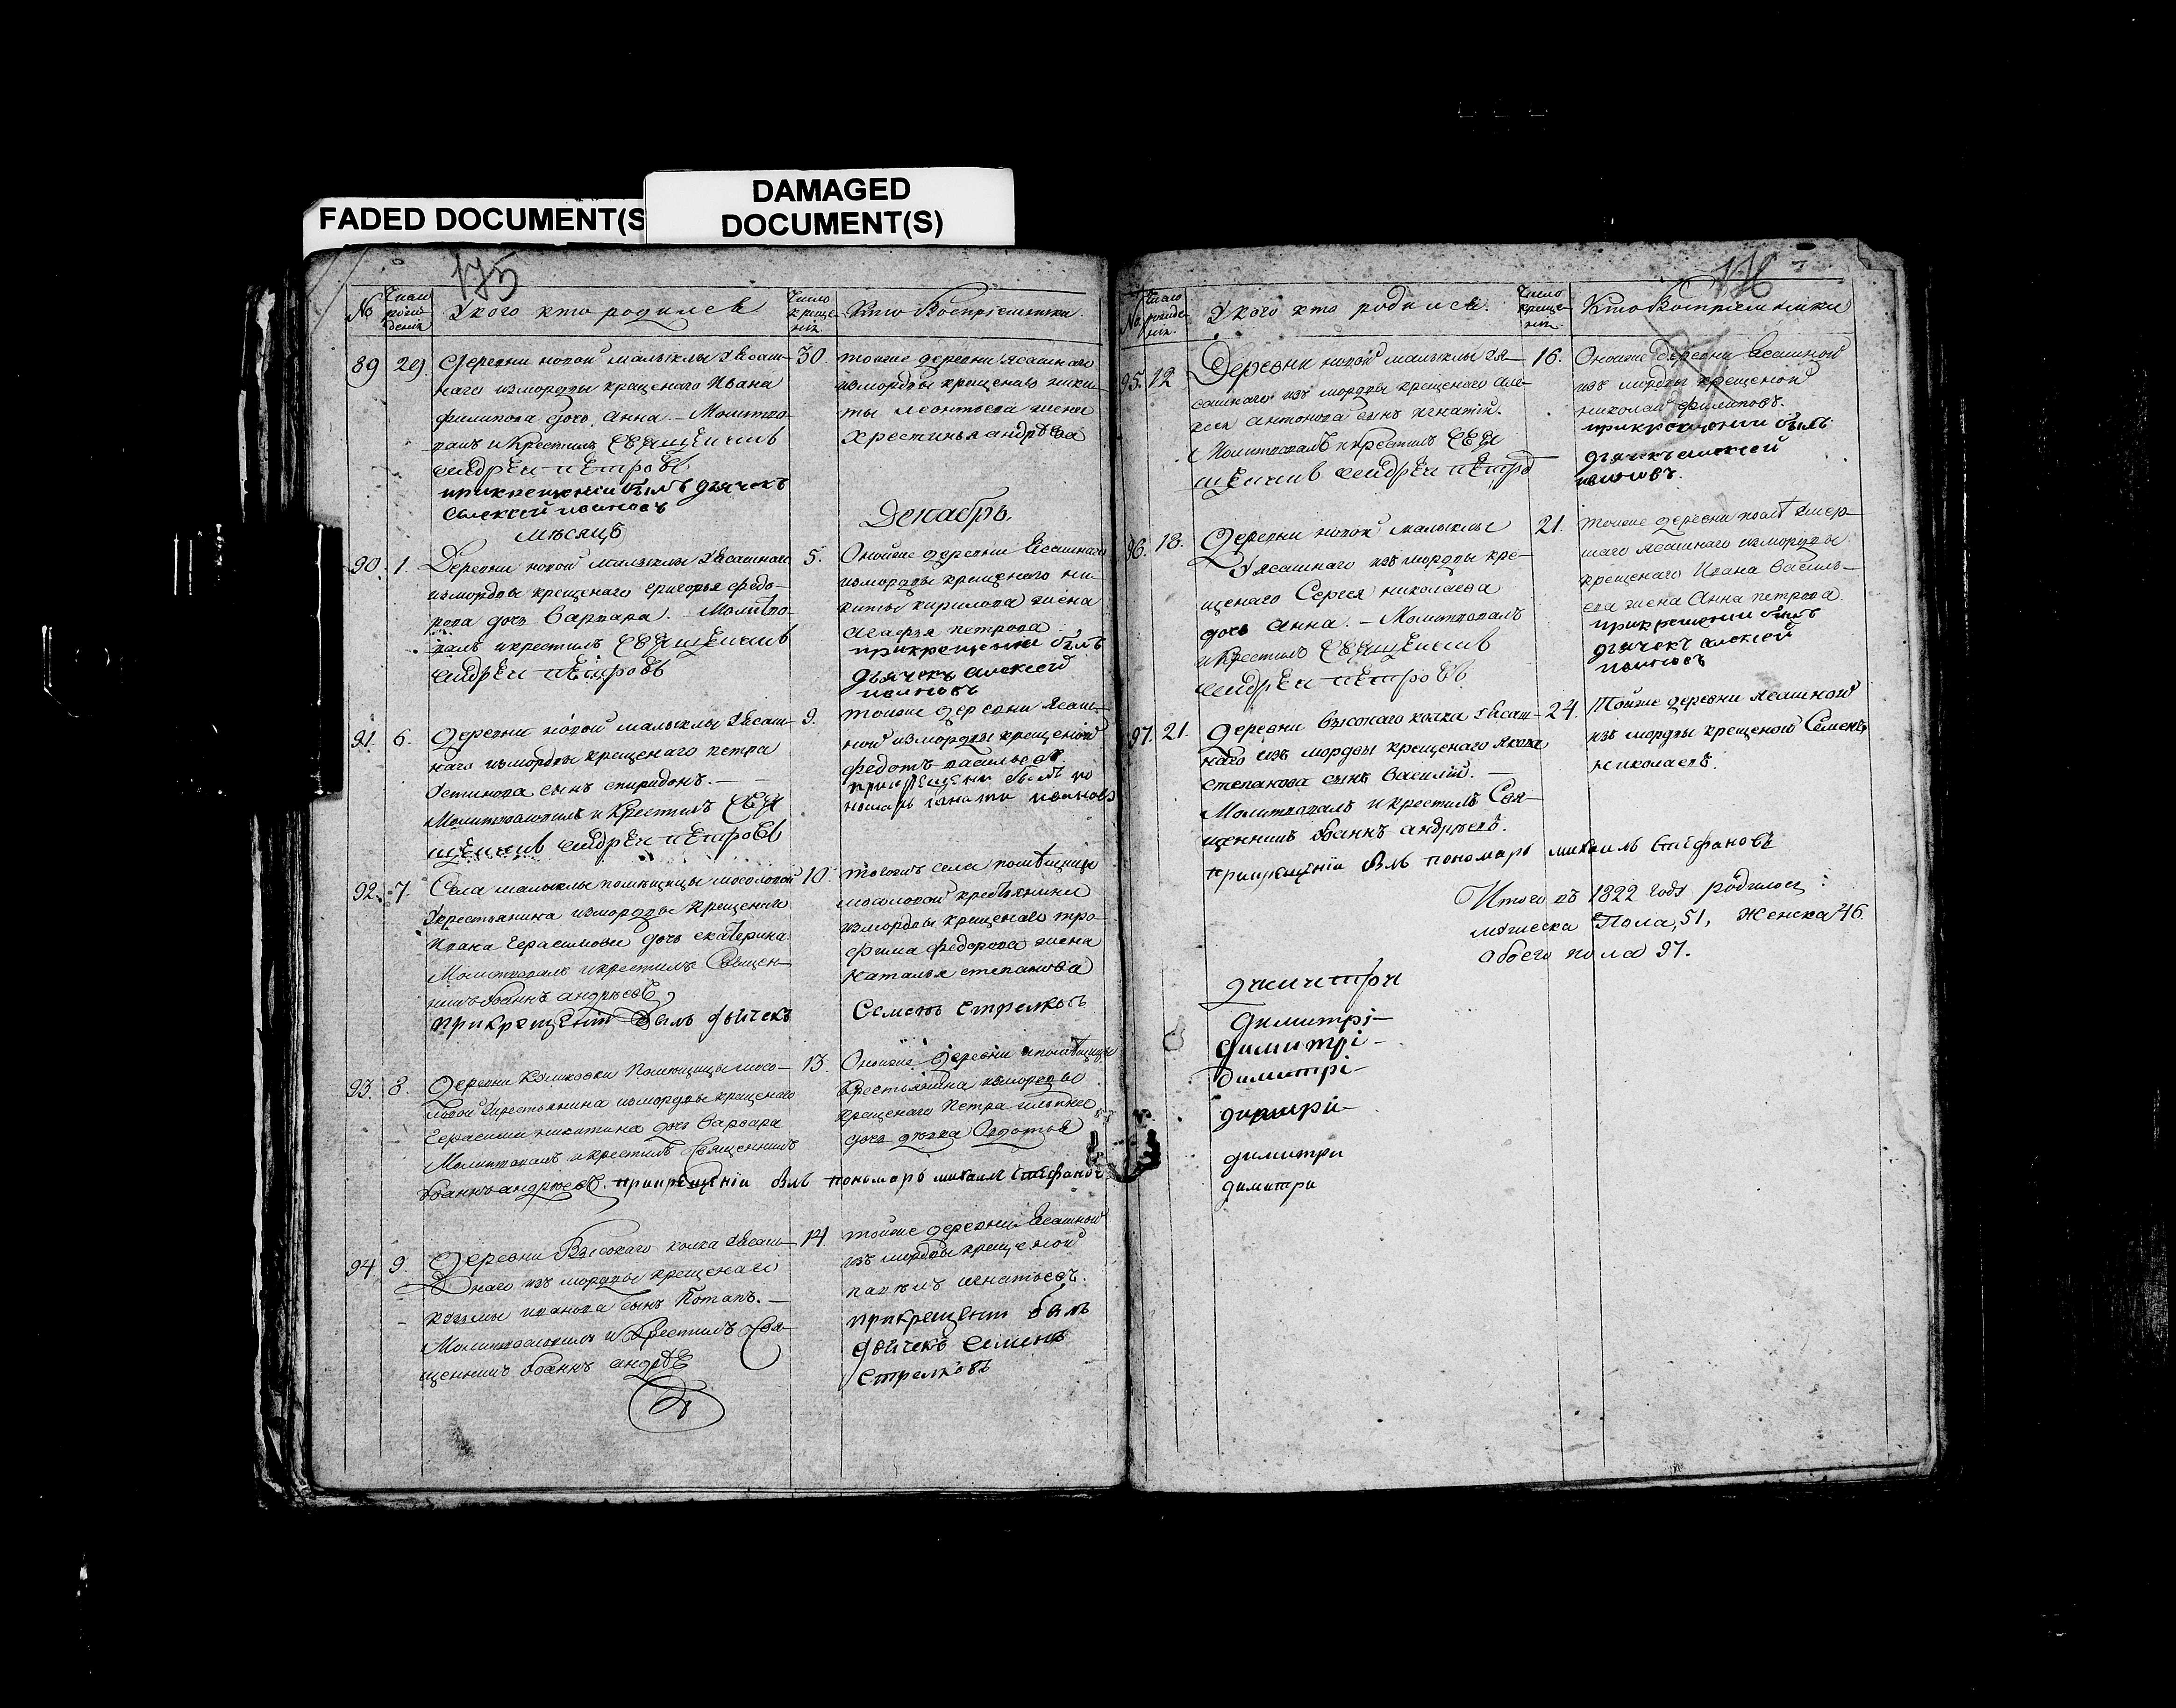 FADED DOCUMENT(S
DAMAGED
DOCUMENT(S)
175
№
Число
рожденія
У кого кто родился
Число
крещенія
Кто Воспріемники.
89
29
Деревни новой малыклы у Ясаш-
наго измордвы крещенаго Ивана
филипова дочь Анна. – Молитво-
валъ и крестилъ священникъ
андреи петровъ
прикрещении былъ дьячекъ
алексей ивановъ
30.
тоиже деревни ясашнаго
измордвы крещенаго ники-
ты леонтьева жена
хрестинья андреева
мѣсяцъ
Декабрь.
90.
1.
Деревни новой малыклы у Ясашнаго
измордвы крещенаго григорья федо-
рова дочь варвара. – Молитво-
валъ и крестилъ священникъ
андреи петровъ
5.
Оноиже деревни Ясашнаго
измордвы крещенаго ни-
киты кирилова жена
агафья петрова
прикрещении былъ
дьячекъ алексей
ивановъ
91.
6.
Деревни новой малыклы у Ясаш-
наго измордвы крещенаго петра
устинова сынъ спиридонъ. –
Молитвовалъ и крестилъ свя
щенникъ андреи петровъ
9.
тоиже деревни Ясаш-
ной измордвы крещеной
федотъ васильевъ.
прикрещени былъ по
номарь ивановъ
92.
7.
Села малыклы помѣщицы мосоловой
у крестьянина измордвы крещенаго
Ивана Герасимова дочь екатерина
Молитвовалъ и крестилъ Священ-
никъ Іоаннъ андреевъ,
прикрещенiи былъ дьячекъ
10.
тогожъ села помѣщицы
мосоловой крестьянина
измордвы крещенаго тро-
фима федорова жена
наталья степанова
Семенъ Стрелковъ
93.
8.
Деревни помѣщицы мосо-
ловой у крестьянина измордвы крещенаго
Герасима никитина дочь варвара
Молитвовалъ и крестилъ Священникъ
Іоаннъ андреевъ. прикрещеніи былъ пономарь михаилъ стефановъ
13.
Оноиже деревни помѣщицы
крестьянина измордвы
крещенаго Петра
дочь девка
94
9.
Деревни Высокаго колка у Ясаш-
наго изъ мордвы крещенаго
козмы иванова сынъ Потапъ. –
Молитвовалъ и крестилъ Свя-
щенникъ Іоаннъ андрее
14.
тоиже деревни Ясашной
изъ мордвы крещеной
павелъ игнатьевъ.
прикрещенiи былъ
дьячекъ семенъ
стрелковъ
176
№.
Число
рожде-
нія.
У кого кто родился.
Число
креще-
нія.
Кто Воспріемники
95.
12
Деревни новой малыклы у я-
сашнаго изъ мордвы крещенаго але-
ксея антонова сынъ игнатій.
Молитвовалъ и крестилъ свя
щенникъ андреи петро
16.
Оноиже деревни Ясашной
изъ мордвы крещеной
николай филиповъ.
прикрещении былъ
дьячекъ алексей
ивановъ.
96.
18.
Деревни новой малыклы
у ясашнаго изъ мордвы кре-
щенаго Сергея николаева
дочь анна. – Молитвовалъ
и крестилъ священникъ
андреи петровъ.
21.
тоиже деревни умер-
шаго ясашнаго измордвы
крещенаго Ивана василь-
ева жена Анна петрова.
прикрещении былъ
дьячекъ алексей
ивановъ
97.
21.
Деревни высокаго колка у Ясаш-
наго изъ мордвы крещенаго Якова
степанова сынъ Василій. –
Молитвовалъ и крестилъ Свя-
щенникъ Іоаннъ андреевъ.
прикрещеніи былъ пономарь михаилъ стефановъ
24.
Тоиже деревни ясашной
изъ мордвы крещеной Семенъ
николаевъ.
Итого въ 1822 году родилось:
мужеска Пола, 51, Женска 46.
обоего пола 97.
димитри
димитрі–
димитрі–
димитрі–
димитри–
димитри
димитри